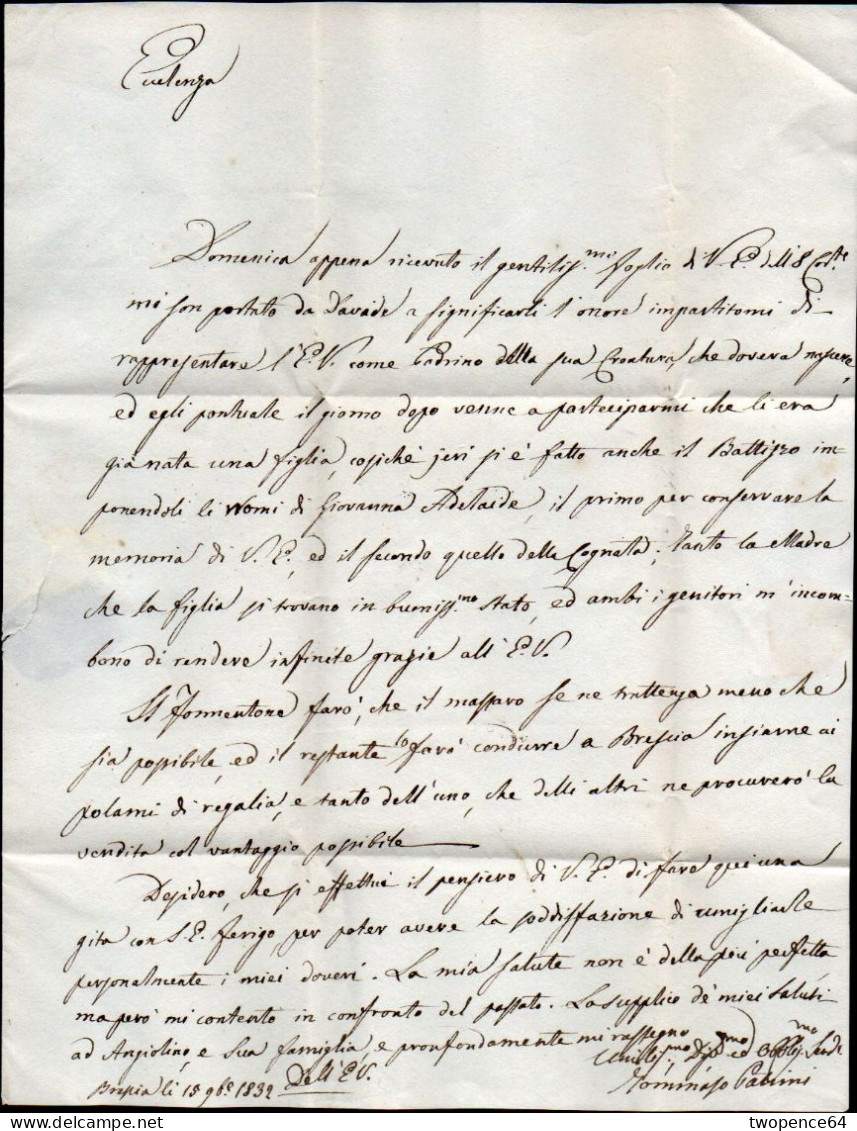 Eccelenza
Domenica appena ricevuto il gentiliss.mo foglio di V.E. delli 8 Cor.te
mi son portato da Davide a significarli l'onore impartitomi di
rappresentare l'E.V. come Padrino della sua Creatura, che doveva nascere,
ed egli pontuale il giorno dopo venne a parteciparmi che li era
già nata una figlia, cosiché jeri si è fatto anche il Battizzo im-
ponendoli li Nomi di Giovanna Adelaide, il primo per conservare la
memoria di V.E., ed il secondo quello della Cognata; tanto la Madre
che la figlia si trovano in buoniss.mo stato, ed ambi i genitori m'incom-
bono di rendere infinite grazie all'E.V.
Il Formentone farò, che il massaro se ne trattenga meno che
sia possibile, ed il restante lo farò condurre a Brescia insieme ai
polami di regalia, e tanto dell'uno, che delli altri ne procurerò la
vendita col vantaggio possibile
Desidero, che si effettui il pensiero di V.E. di fare qui una
gita con S.E. Ferigo, per poter avere la soddisfazione di umigliarle
personalmente i miei doveri. La mia salute non è della più perfetta
ma però mi contento in confronto del passato. La supplico de' miei saluti
ad Angiolino, e Sua famiglia, e profondamente mi rassegno
Dell'E.V.
Umiliss.mo Dev.mo ed Obblig.mo
Brescia li 15 9b.e 1832
Tommaso
twopence64